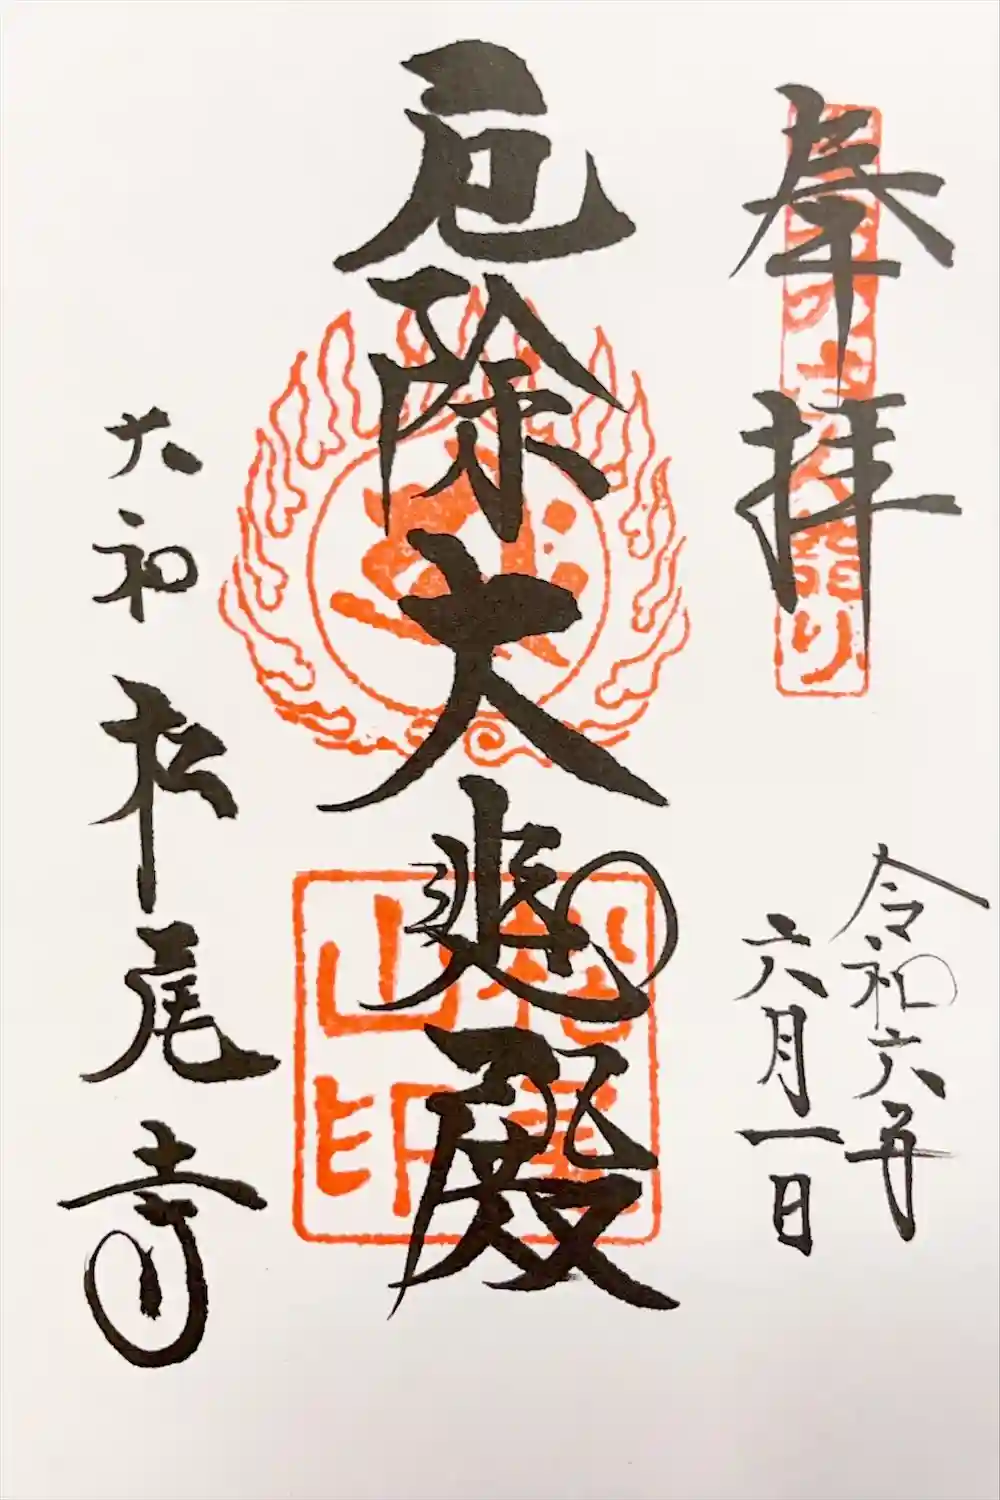 奉拝
令和六年
六月一日
厄除大悲殿
大和 松尾寺
松尾
山印